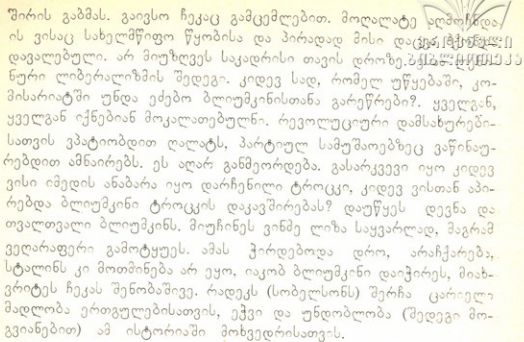 შირის გაბმას. გაივსო ჩეკაც გამცემლებით. მოღალატე აღმოჩნდა
ის ვისაც სახელმწიფო წყობისა და პირადად მისი დაცვა
დავალებული. არ მიუზღვეს საკადრისი თავის დროზე.
ნური ლიბერალიზმის შედეგი. კიდევ სად, რომელ უწყებაში, კო-
მისარიატში უნდა ეძებო ბლიუმკინისთანა გარეწრები?. ყველგან,
ყველგან იქნებიან მოკალათებულნი. რევოლუციური დამსახურები-
სათვის ვპატიობდით ღალატს, პარტიულ სამუშაოებზეც ვაწინაუ-
რებდით ამნაირებს. ეს აღარ განმეორდება. გასარკვევი იყო კიდევ
ვისი იმედის ანაბარა იყო დარჩენილი ტროცკი, კიდევ ვისთან აპი-
რებდა ბლიუმკინი ტროცკის დაკავშირებას? დაუწყეს დევნა და
თვალთვალი ბლიუმკინს. მიუჩინეს ვინმე ლიზა საყვარლად, მაგრამ
ვერაფერი გამოტყუეს. ამას ჭირდებოდა დრო, არაჩქარება,
სტალინს კი მოთმინება არ ეყო, იაკობ ბლიუმკინი დაიჭირეს, მიახ-
ვრიტეს ჩეკას შენობაშივე. რადეკს (სობელსონს) შერჩა ცარიელი
მადლობა ერთგულებისათვის, ეჭვი და უნდობლობა (შედეგი მო-
გვიანებით) ამ ისტორიაში მოხვედრისათვის.